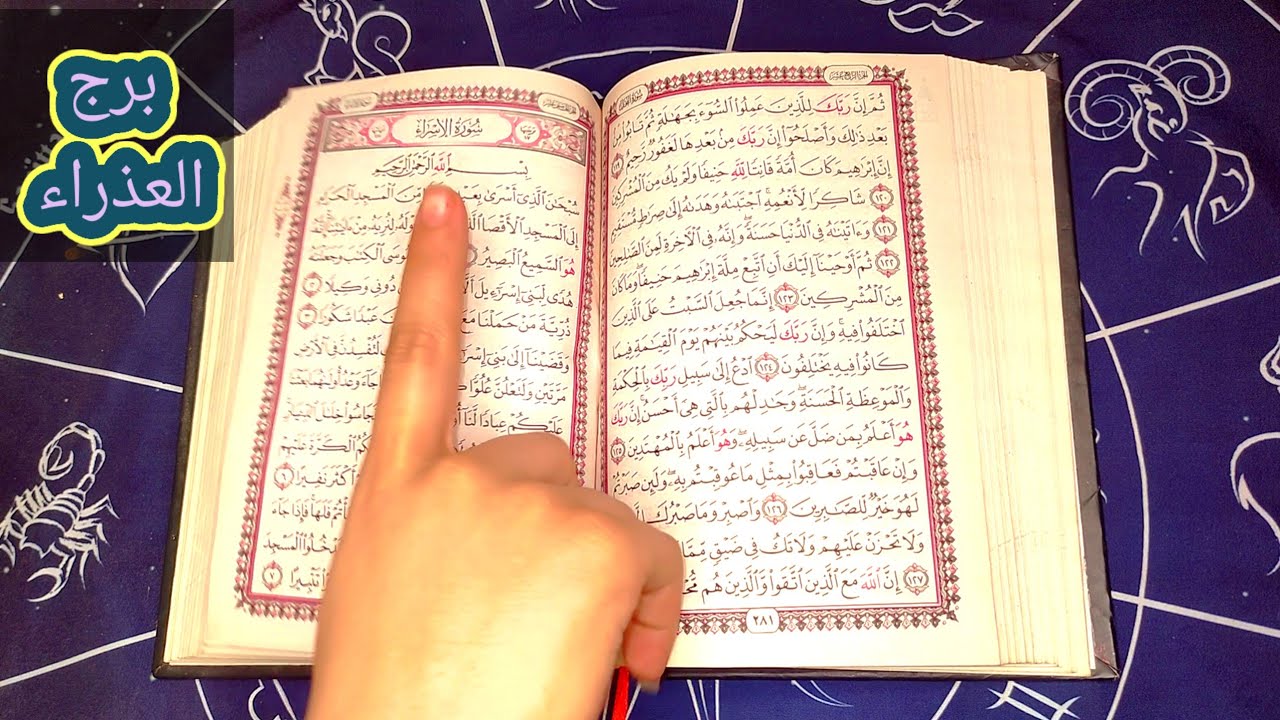 برج
العذراء
ثُمَّ إِنَّ رَبَّكَ لِلَّذِينَ عَمِلُوا۟ ٱلسُّوٓءَ بِجَهَٰلَةٍ ثُمَّ تَابُوا۟ مِنۢ
بَعْدِ ذَٰلِكَ وَأَصْلَحُوٓا۟ إِنَّ رَبَّكَ مِنۢ بَعْدِهَا لَغَفُورٌ رَّحِيمٌ ١١٩
إِنَّ إِبْرَٰهِيمَ كَانَ أُمَّةً قَانِتًا لِّلَّهِ حَنِيفًا وَلَمْ يَكُ مِنَ ٱلْمُشْرِكِينَ
١٢٠ شَاكِرًا لِّأَنْعُمِهِ ٱجْتَبَىٰهُ وَهَدَىٰهُ إِلَىٰ صِرَٰطٍ مُّسْتَقِيمٍ
١٢١ وَءَاتَيْنَٰهُ فِى ٱلدُّنْيَا حَسَنَةً وَإِنَّهُۥ فِى ٱلْءَاخِرَةِ لَمِنَ ٱلصَّٰلِحِينَ
١٢٢ ثُمَّ أَوْحَيْنَآ إِلَيْكَ أَنِ ٱتَّبِعْ مِلَّةَ إِبْرَٰهِيمَ حَنِيفًا وَمَا كَانَ
مِنَ ٱلْمُشْرِكِينَ ١٢٣ إِنَّمَا جُعِلَ ٱلسَّبْتُ عَلَى ٱلَّذِينَ
ٱخْتَلَفُوا۟ فِيهِ وَإِنَّ رَبَّكَ لَيَحْكُمُ بَيْنَهُمْ يَوْمَ ٱلْقِيَٰمَةِ فِيمَا
كَانُوا۟ فِيهِ يَخْتَلِفُونَ ١٢٤ ٱدْعُ إِلَىٰ سَبِيلِ رَبِّكَ بِٱلْحِكْمَةِ
وَٱلْمَوْعِظَةِ ٱلْحَسَنَةِ وَجَٰدِلْهُم بِٱلَّتِى هِىَ أَحْسَنُ إِنَّ رَبَّكَ
هُوَ أَعْلَمُ بِمَن ضَلَّ عَن سَبِيلِهِۦ وَهُوَ أَعْلَمُ بِٱلْمُهْتَدِينَ ١٢٥
وَإِنْ عَاقَبْتُمْ فَعَاقِبُوا۟ بِمِثْلِ مَا عُوقِبْتُم بِهِۦ وَلَئِن صَبَرْتُمْ
لَهُوَ خَيْرٌ لِّلصَّٰبِرِينَ ١٢٦ وَٱصْبِرْ وَمَا صَبْرُكَ
وَلَا تَحْزَنْ عَلَيْهِمْ وَلَا تَكُ فِى ضَيْقٍ مِّمَّا
١٢٧ إِنَّ ٱللَّهَ مَعَ ٱلَّذِينَ ٱتَّقَوا۟ وَّٱلَّذِينَ هُم
٢٨١
سُورَةُ الْإِسْرَاءِ
بِسْمِ ٱللَّهِ ٱلرَّحْمَٰنِ ٱلرَّحِيمِ
سُبْحَٰنَ ٱلَّذِىٓ أَسْرَىٰ مِّنَ ٱلْمَسْجِدِ ٱلْحَرَامِ
إِلَى ٱلْمَسْجِدِ ٱلْأَقْصَا لِنُرِيَهُۥ مِنْ ءَايَٰتِنَآ إِنَّهُۥ
هُوَ ٱلسَّمِيعُ ٱلْبَصِيرُ ٱلْكِتَٰبَ وَجَعَلْنَٰهُ
هُدًى لِّبَنِىٓ إِسْرَٰٓءِيلَ دُونِى وَكِيلًا ٢
ذُرِّيَّةَ مَنْ حَمَلْنَا مَعَ عَبْدًا شَكُورًا ٣
وَقَضَيْنَآ إِلَىٰ بَنِىٓ لَتُفْسِدُنَّ فِى ٱلْأَرْضِ
مَرَّتَيْنِ وَلَتَعْلُنَّ عُلُوًّا جَآءَ وَعْدُ أُولَىٰهُمَا بَعَثْنَا
عَلَيْكُمْ عِبَادًا لَّنَآ خِلَٰلَ ٱلدِّيَارِ
ٱلْكَرَّةَ عَلَيْهِمْ
أَكْثَرَ نَفِيرًا ٦
فَلَهَا فَإِذَا جَآءَ
ٱلْمَسْجِدَ
تَتْبِيرًا ٧